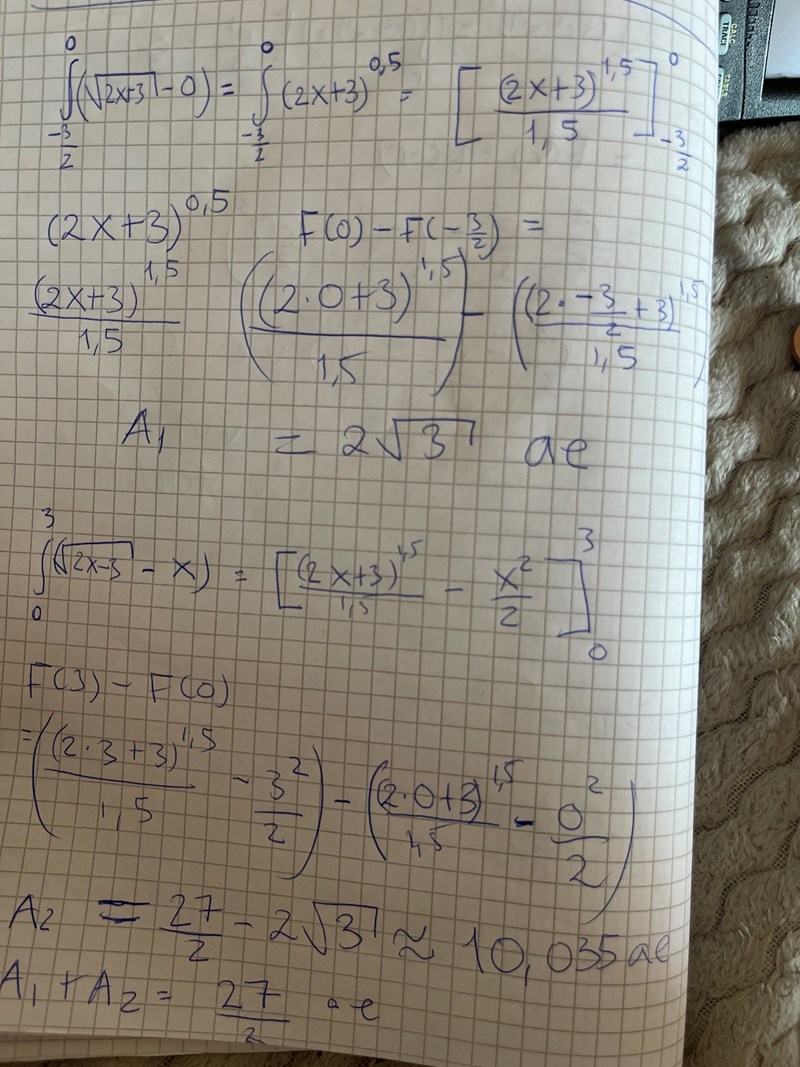 ∫_{-3/2}^{0} (√(2x+3) - 0) = ∫_{-3/2}^{0} (2x+3)^{0,5} = [ (2x+3)^{1,5} / 1,5 ]_{-3/2}^{0}
(2x+3)^{0,5} F(0) - F(-3/2) =
(2x+3)^{1,5} / 1,5 ( (2·0+3)^{1,5} / 1,5 ) - ( (2·-3/2+3)^{1,5} / 1,5 )
A₁ = 2√3 ae
∫_{0}^{3} (√(2x-3) - x) = [ (2x+3)^{1,5} / 1,5 - x²/2 ]_{0}^{3}
F(3) - F(0)
= ( (2·3+3)^{1,5} / 1,5 - 3²/2 ) - ( (2·0+3)^{1,5} / 1,5 - 0²/2 )
A₂ = 27/2 - 2√3 ≈ 10,035 ae
A₁ + A₂ = 27/2 ae